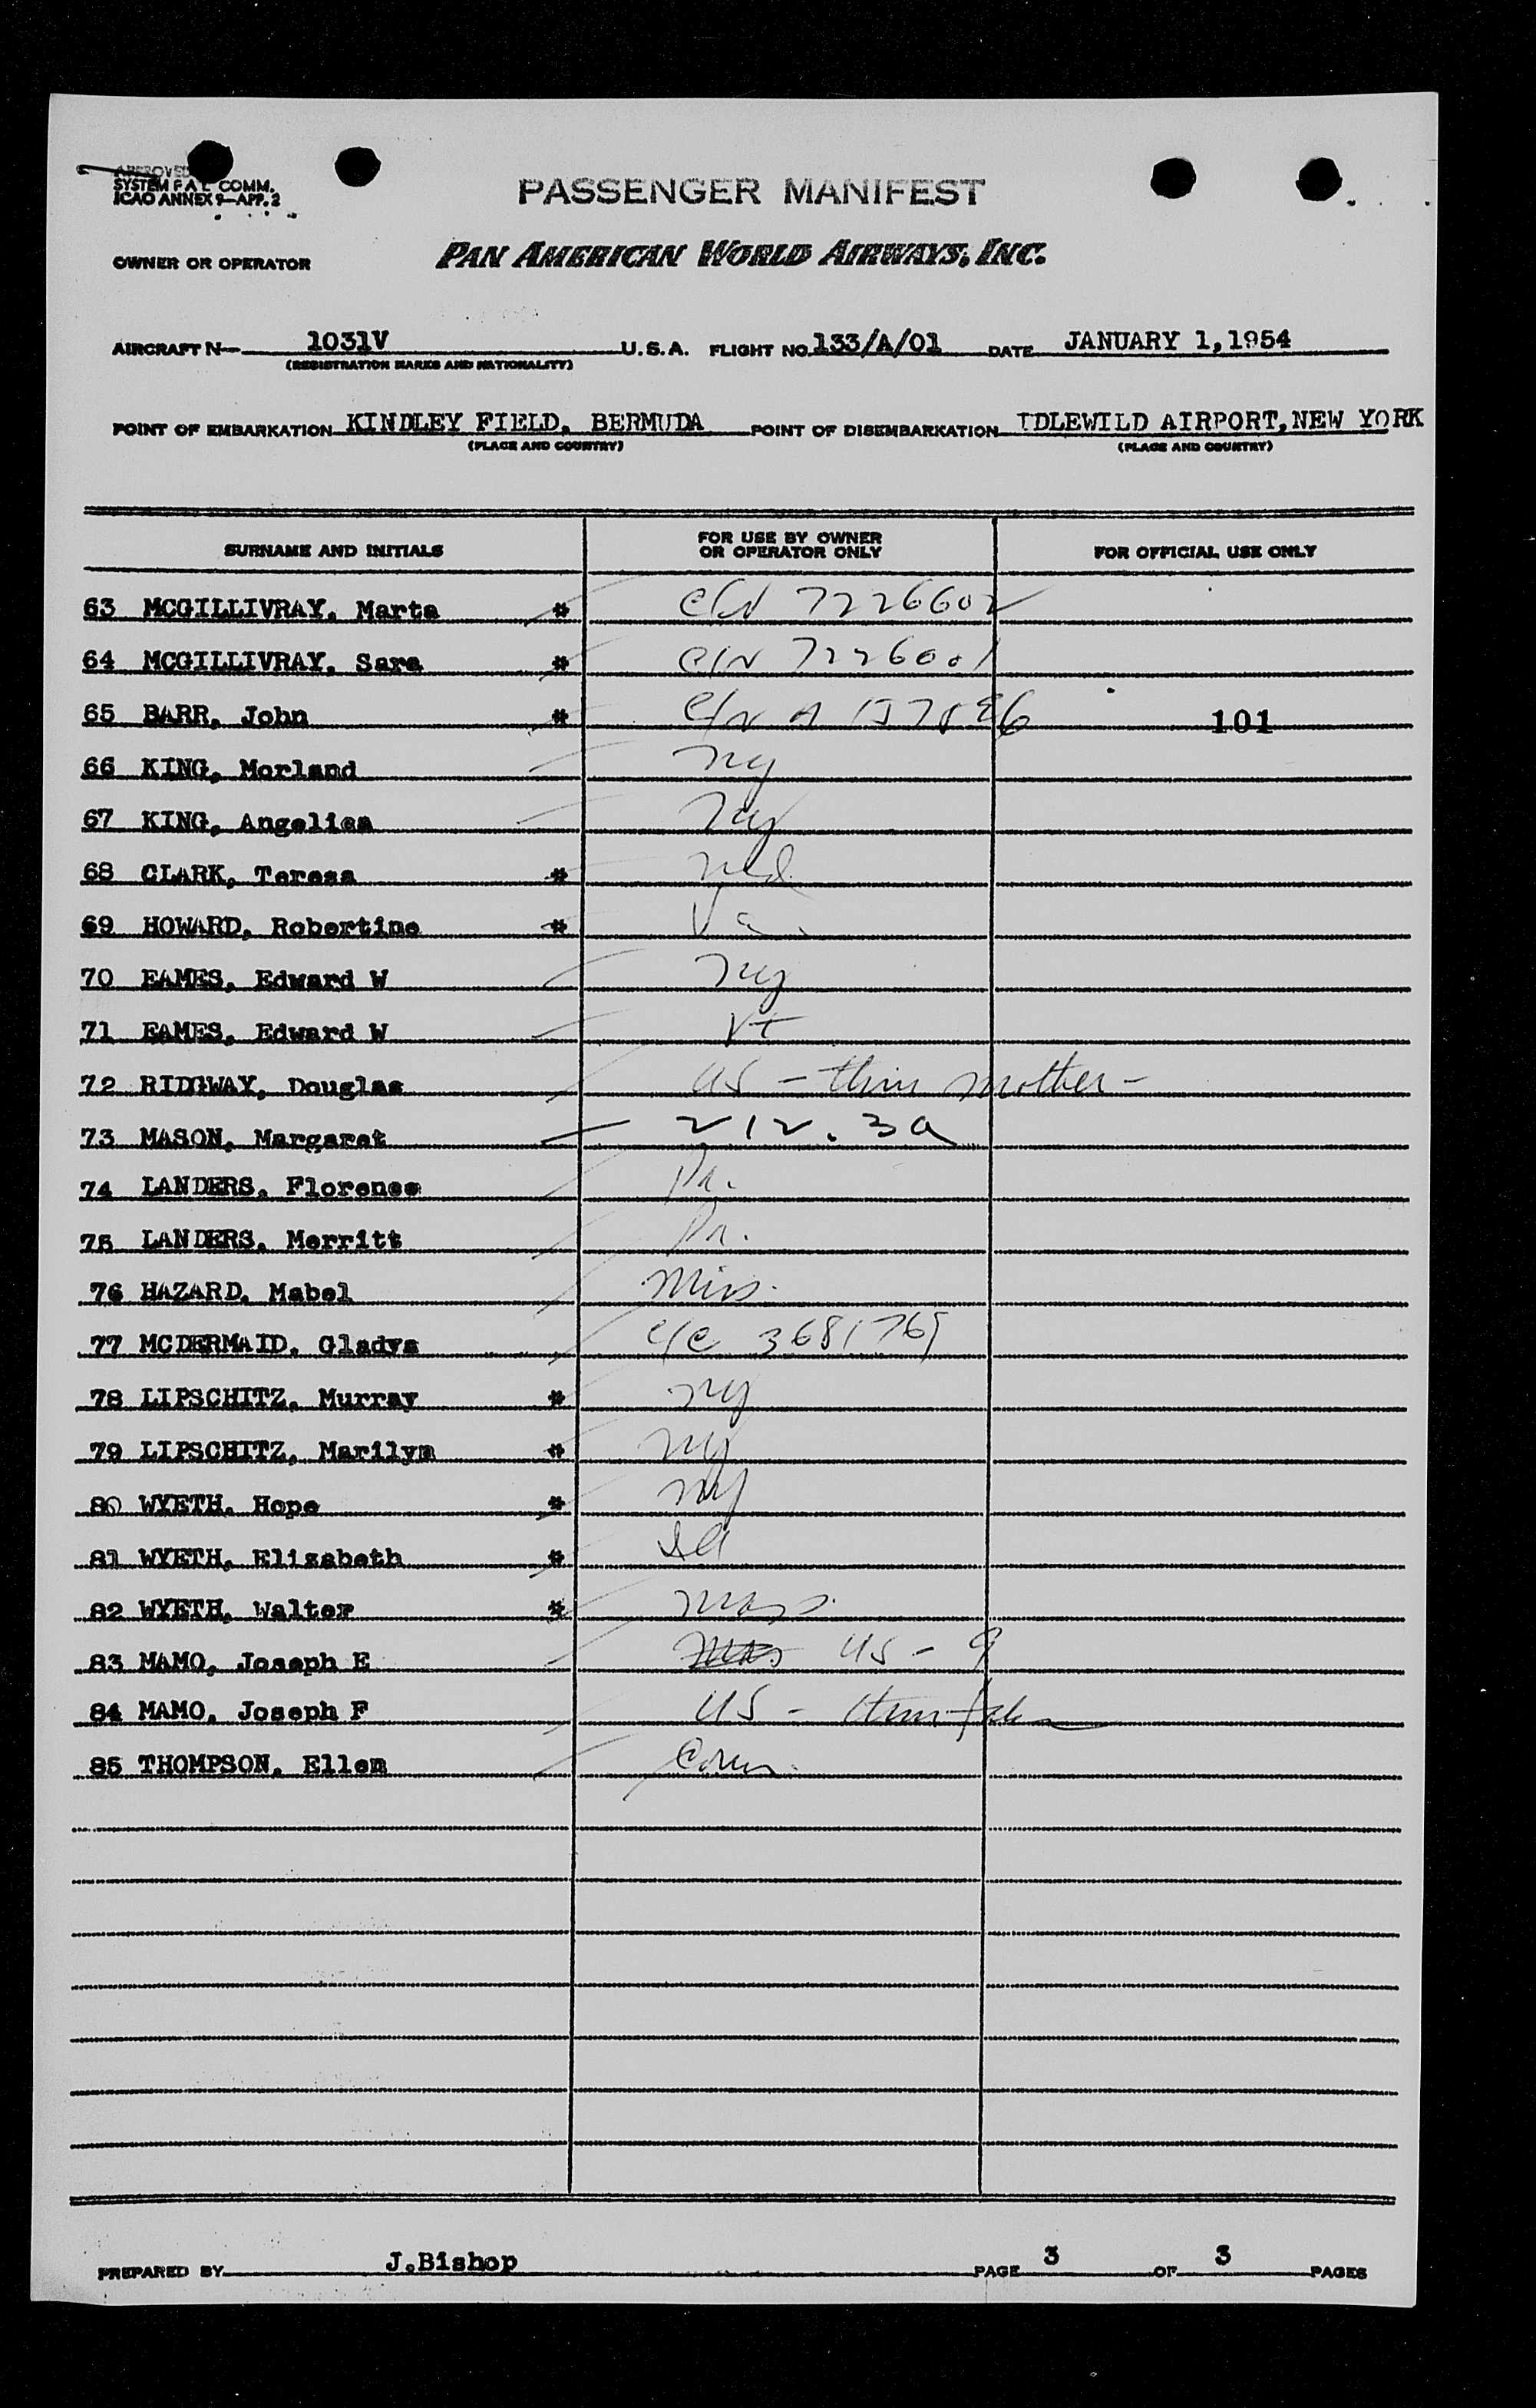 APPROVED
SYSTEM F A L COMM.
ICAO ANNEX 9—APP. 2
PASSENGER MANIFEST
OWNER OR OPERATOR PAN AMERICAN WORLD AIRWAYS, INC.
AIRCRAFT N— 1031V U.S.A. FLIGHT NO. 133/A/01 DATE JANUARY 1,1954
(REGISTRATION MARKS AND NATIONALITY)
POINT OF EMBARKATION KINDLEY FIELD, BERMUDA POINT OF DISEMBARKATION IDLEWILD AIRPORT, NEW YORK
(PLACE AND COUNTRY) (PLACE AND COUNTRY)
SURNAME AND INITIALS FOR USE BY OWNER OR OPERATOR ONLY FOR OFFICIAL USE ONLY
63 MCGILLIVRAY, Marta * C/N 7226602
64 MCGILLIVRAY, Sara * C/N 7226001
65 BARR, John * C/N A 101
66 KING, Morland ny
67 KING, Angelica ny
68 CLARK, Teresa * md
69 HOWARD, Robertine * Va.
70 EAMES, Edward W ny
71 EAMES, Edward W Vt
72 RIDGWAY, Douglas US - thru mother -
73 MASON, Margaret 212.3a
74 LANDERS, Florence Pa.
75 LANDERS, Merritt Pa.
76 HAZARD, Mabel Miss.
77 MCDERMAID, Gladys c/c 3681769
78 LIPSCHITZ, Murray * ny
79 LIPSCHITZ, Marilyn * ny
80 WYETH, Hope * ny
81 WYETH, Elizabeth *
82 WYETH, Walter * mass.
83 MAMO, Joseph E US - 9
84 MAMO, Joseph F US - thru
85 THOMPSON, Ellen Conn.
PREPARED BY J.Bishop PAGE 3 OF 3 PAGES